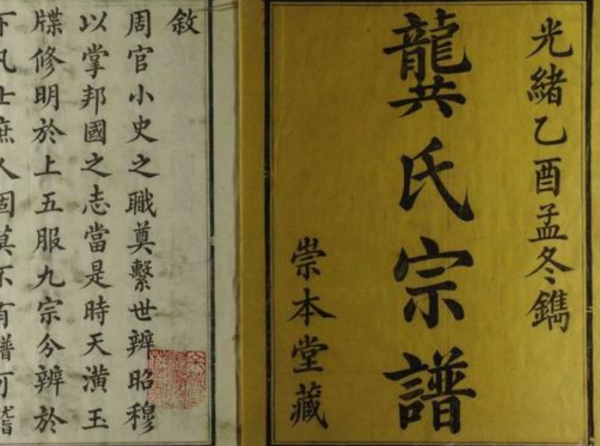 光緒乙酉孟冬鐫
龔氏宗譜
崇本堂藏
敘
周官小史之職奠繫世辨昭穆
以掌邦國之志當是時天潢玉
牒修明於上五服九宗分辨於
下凡士庶人固莫不有譜可